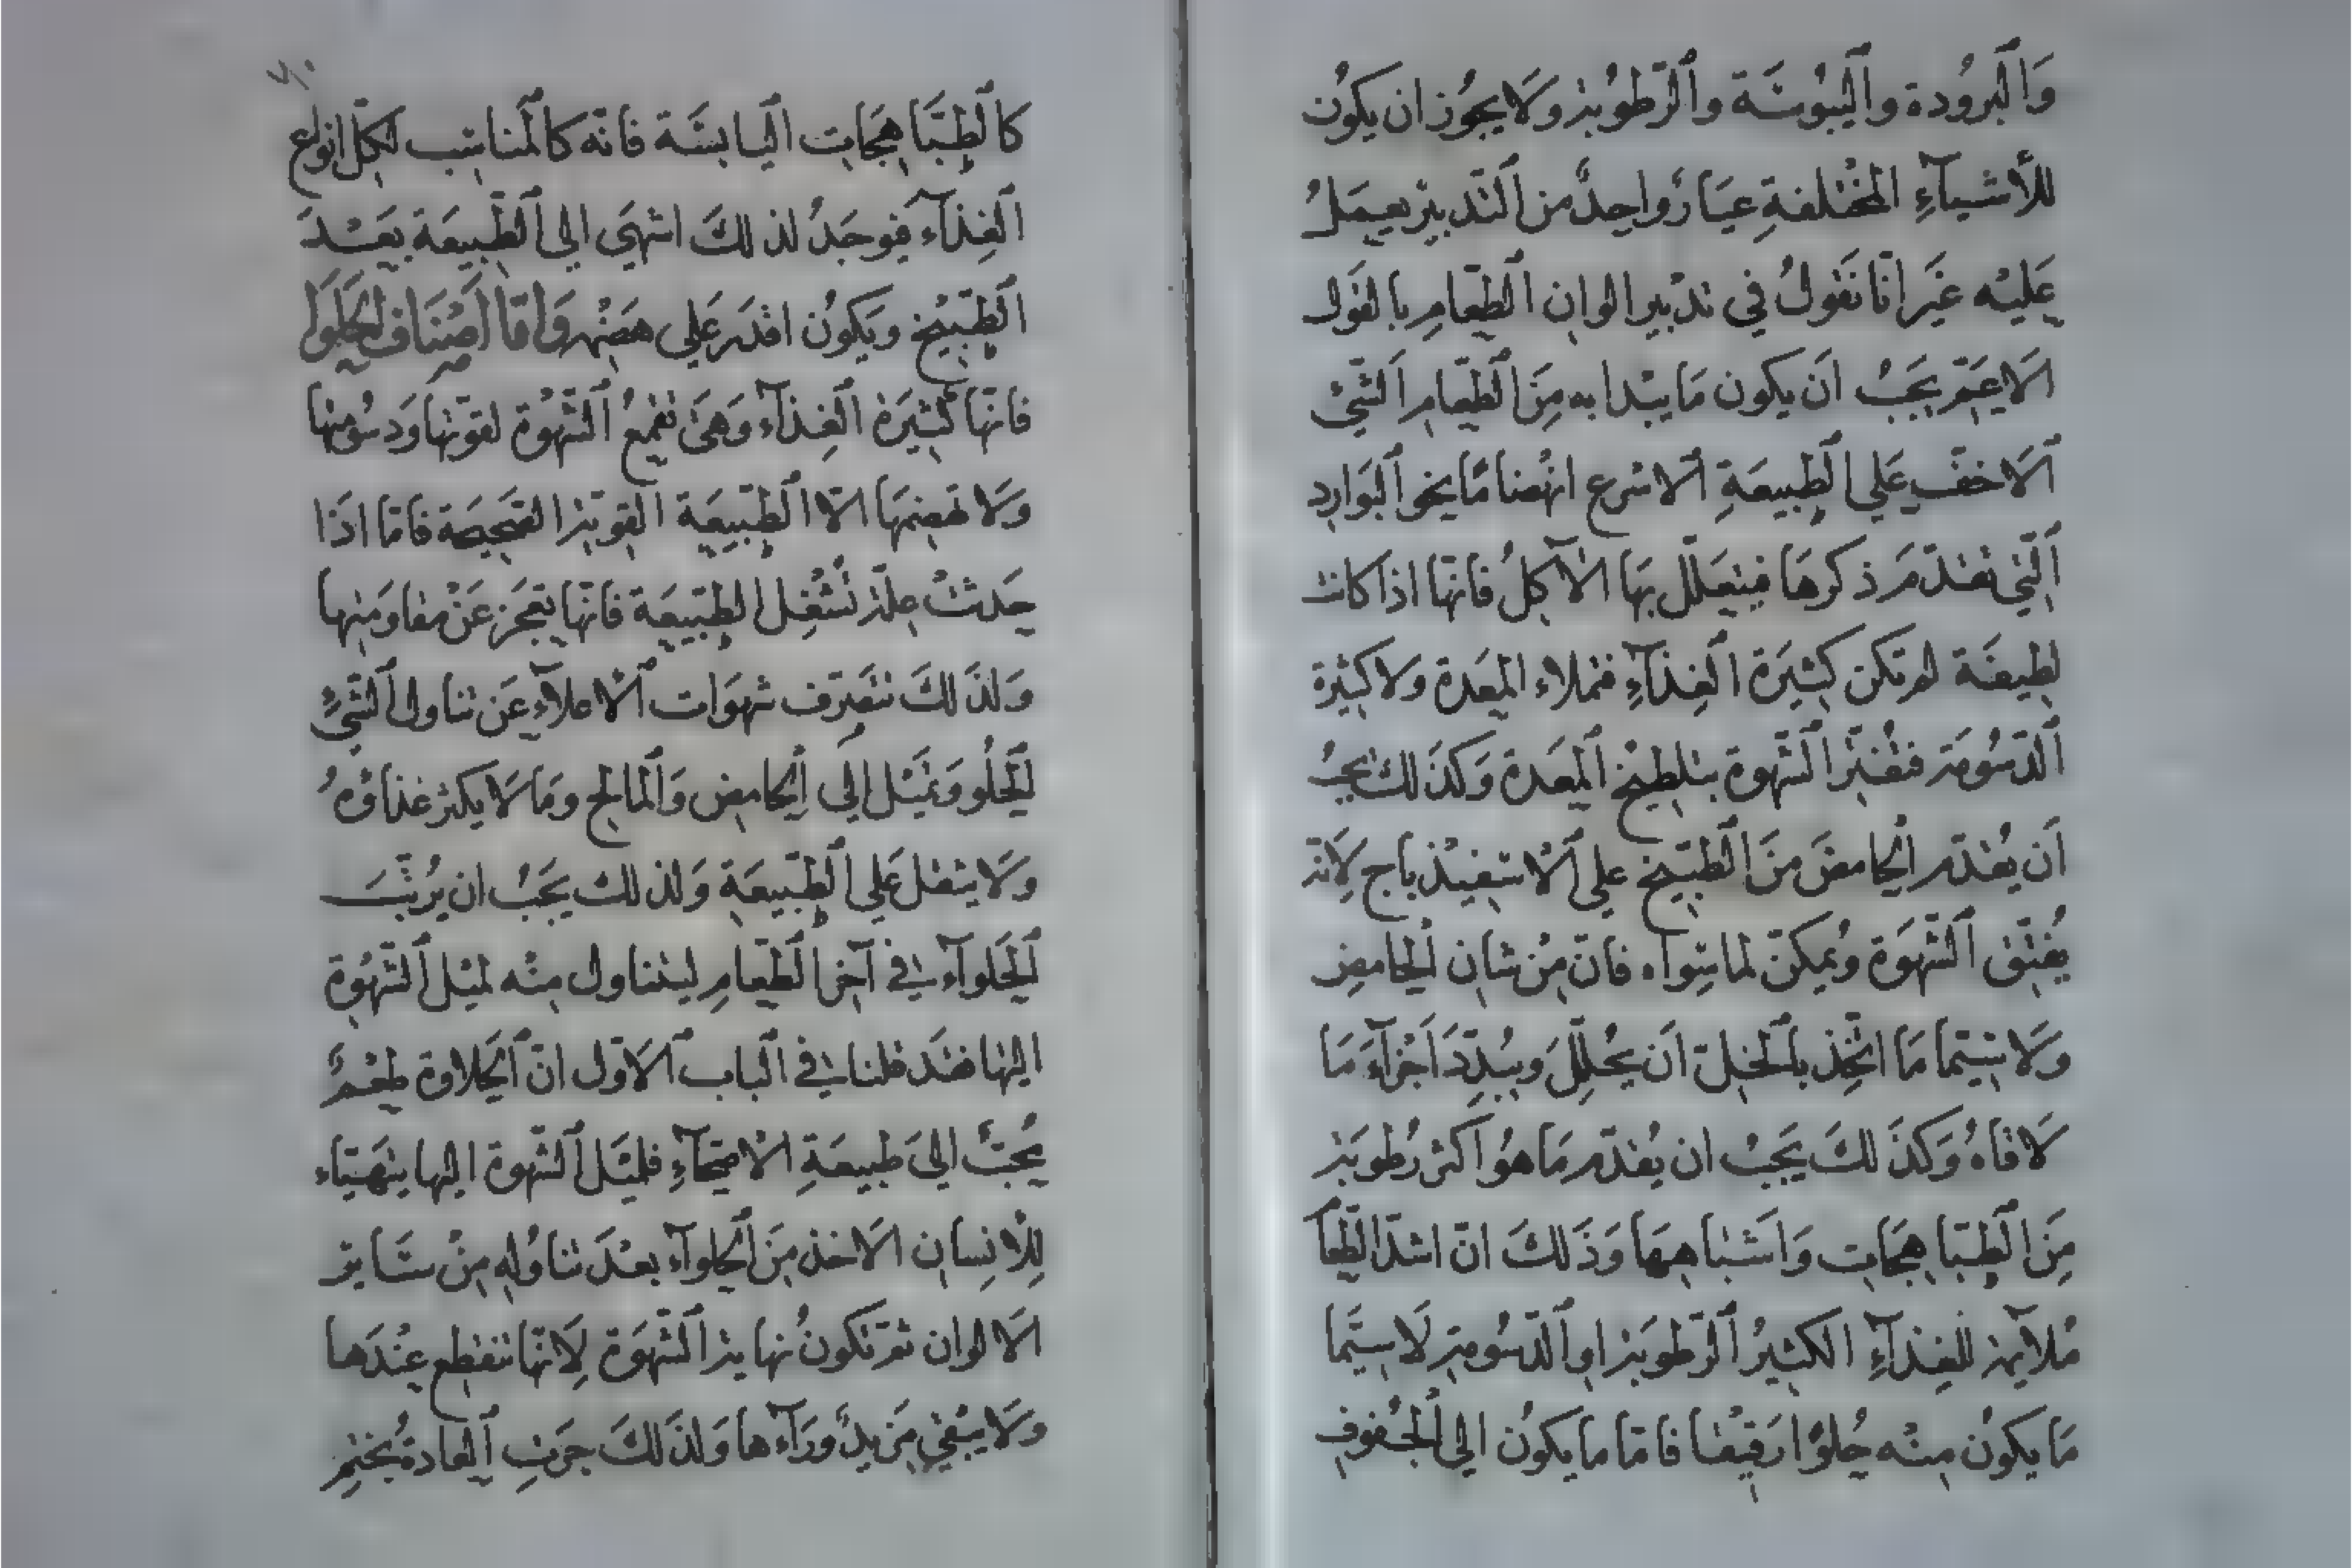 وَالبرُودة واليبُوسَة والرّطوبة ولَا يجُوز ان يكُون
للأشيآءِ المخْتلفةِ عيَارٌ واحِدٌ من التّدبير يعمَلُ
عَليْه غيَر انّا نَقولُ في تدْبير الوان الطّعامِ بالقَول
الَاعَمّ يجَبُ انَ يكون مَا يبْدا به مِنَ الطّعام الشّئ
الَاخفّ عَلي الطّبيعَةِ الاسْرع انهْضامًا نحو البَوارد
الّتي تقدّمَ ذكرهَا فيتعَلّل بهَا الآكِلُ فانهّا اذا كانت
لطيفَة لم تكن كثيَرة الغِذآءِ فتملاء المعَدة ولا كثيْرة
الدّسُومَة فتفُتّر الشّهوة بتلطيْخ المعَدة وَكذَلك يجبُ
اَن يقُدّم الحامضَ منَ الطّبيْخ علي الاسْفيْذباج لِانّه
يُفتِّق الشّهَوة وُيمكنّ لما سِواه فانّ مِنْ شان الحامِض
ولَا سِيّما مَا اتّخِذ بالخلّ اَن يحُلِّلَ ويبُدِّدَ اَجْزآءَ مَا
لَاقاهُ وَكذَلكَ يَجبُ ان يُقدّم مَا هوُ اكثر رُطوبَة
مِنَ الطّبَاهِجَات وَاشَباهِهَا وَذَلكَ انّ اشدّ الطّعا
مُلآيمة للغِذآءِ الكثيْرُ الرّطوبَة او الدّسُومَة لَا سِيّما
مَا يكونُ مِنْه حُلوًا رَقيْقا فامّا ما يكوُن الي الجُفوفِ
٧٠
كالطّبَاهِجَات اليابسَة فانّه كالمنُاسب لكلّ انواع
الغِذآء فيوجَدُ لذلكَ اشهَي الي الطّبيعَة بعَـْدَ
الطّبيْخ ويَكوُن اقدَر عَلي هضَمْه وَامّا اَصْنَاف الحَلوَا
فانهّا كثيْرَة الغِذآء وَهيَ تقمعُ الشّهْوة لقوتها وَدسُومتها
ولَا تهضمهَا الّا الطّبيعَة القويّة الصّحيحَة فامّا اذَا
حدثتْ علّة تُشْغِل الطّبيعَة فانهّا تعجَز عَنْ مقاومَتها
وَلذَلكَ تنصَرف شهوَات الْاعلآءِ عَن تناول الشّئِ
الحُلْو وَتميَْل اليَ الحامِض وَالمالح ومَا لَا يكثر غذاؤهُ
ولَا يثقل عَلي الطّبيعَة وَلذلك يجَبُ ان يُرتّبَ
الحَلوآء في آخر الطّعامِ ليتناول منْه لميْل الشّهوْة
اليَها فقَد قلنا في الباب الَاوّل انّ الحلاوة طعْمٌ
يُحبّبُ اليَ طبيعَةِ الاصحّآءِ فلميَْل الشّهوة اليها يتهَيّاء
لِلْانِسان الاخذ مِنَ الحلوآء بعْدَ تناوُله مِنْ سَـايرِ
الَالوان ثم تكونُ نهاية الشّهَوة لِانهّا تنقطع عنْدَها
ولَا يبْقي مَزيدٌ ورَآءهَا وَلذَلكَ جَرتِ العادةُ بختمِ